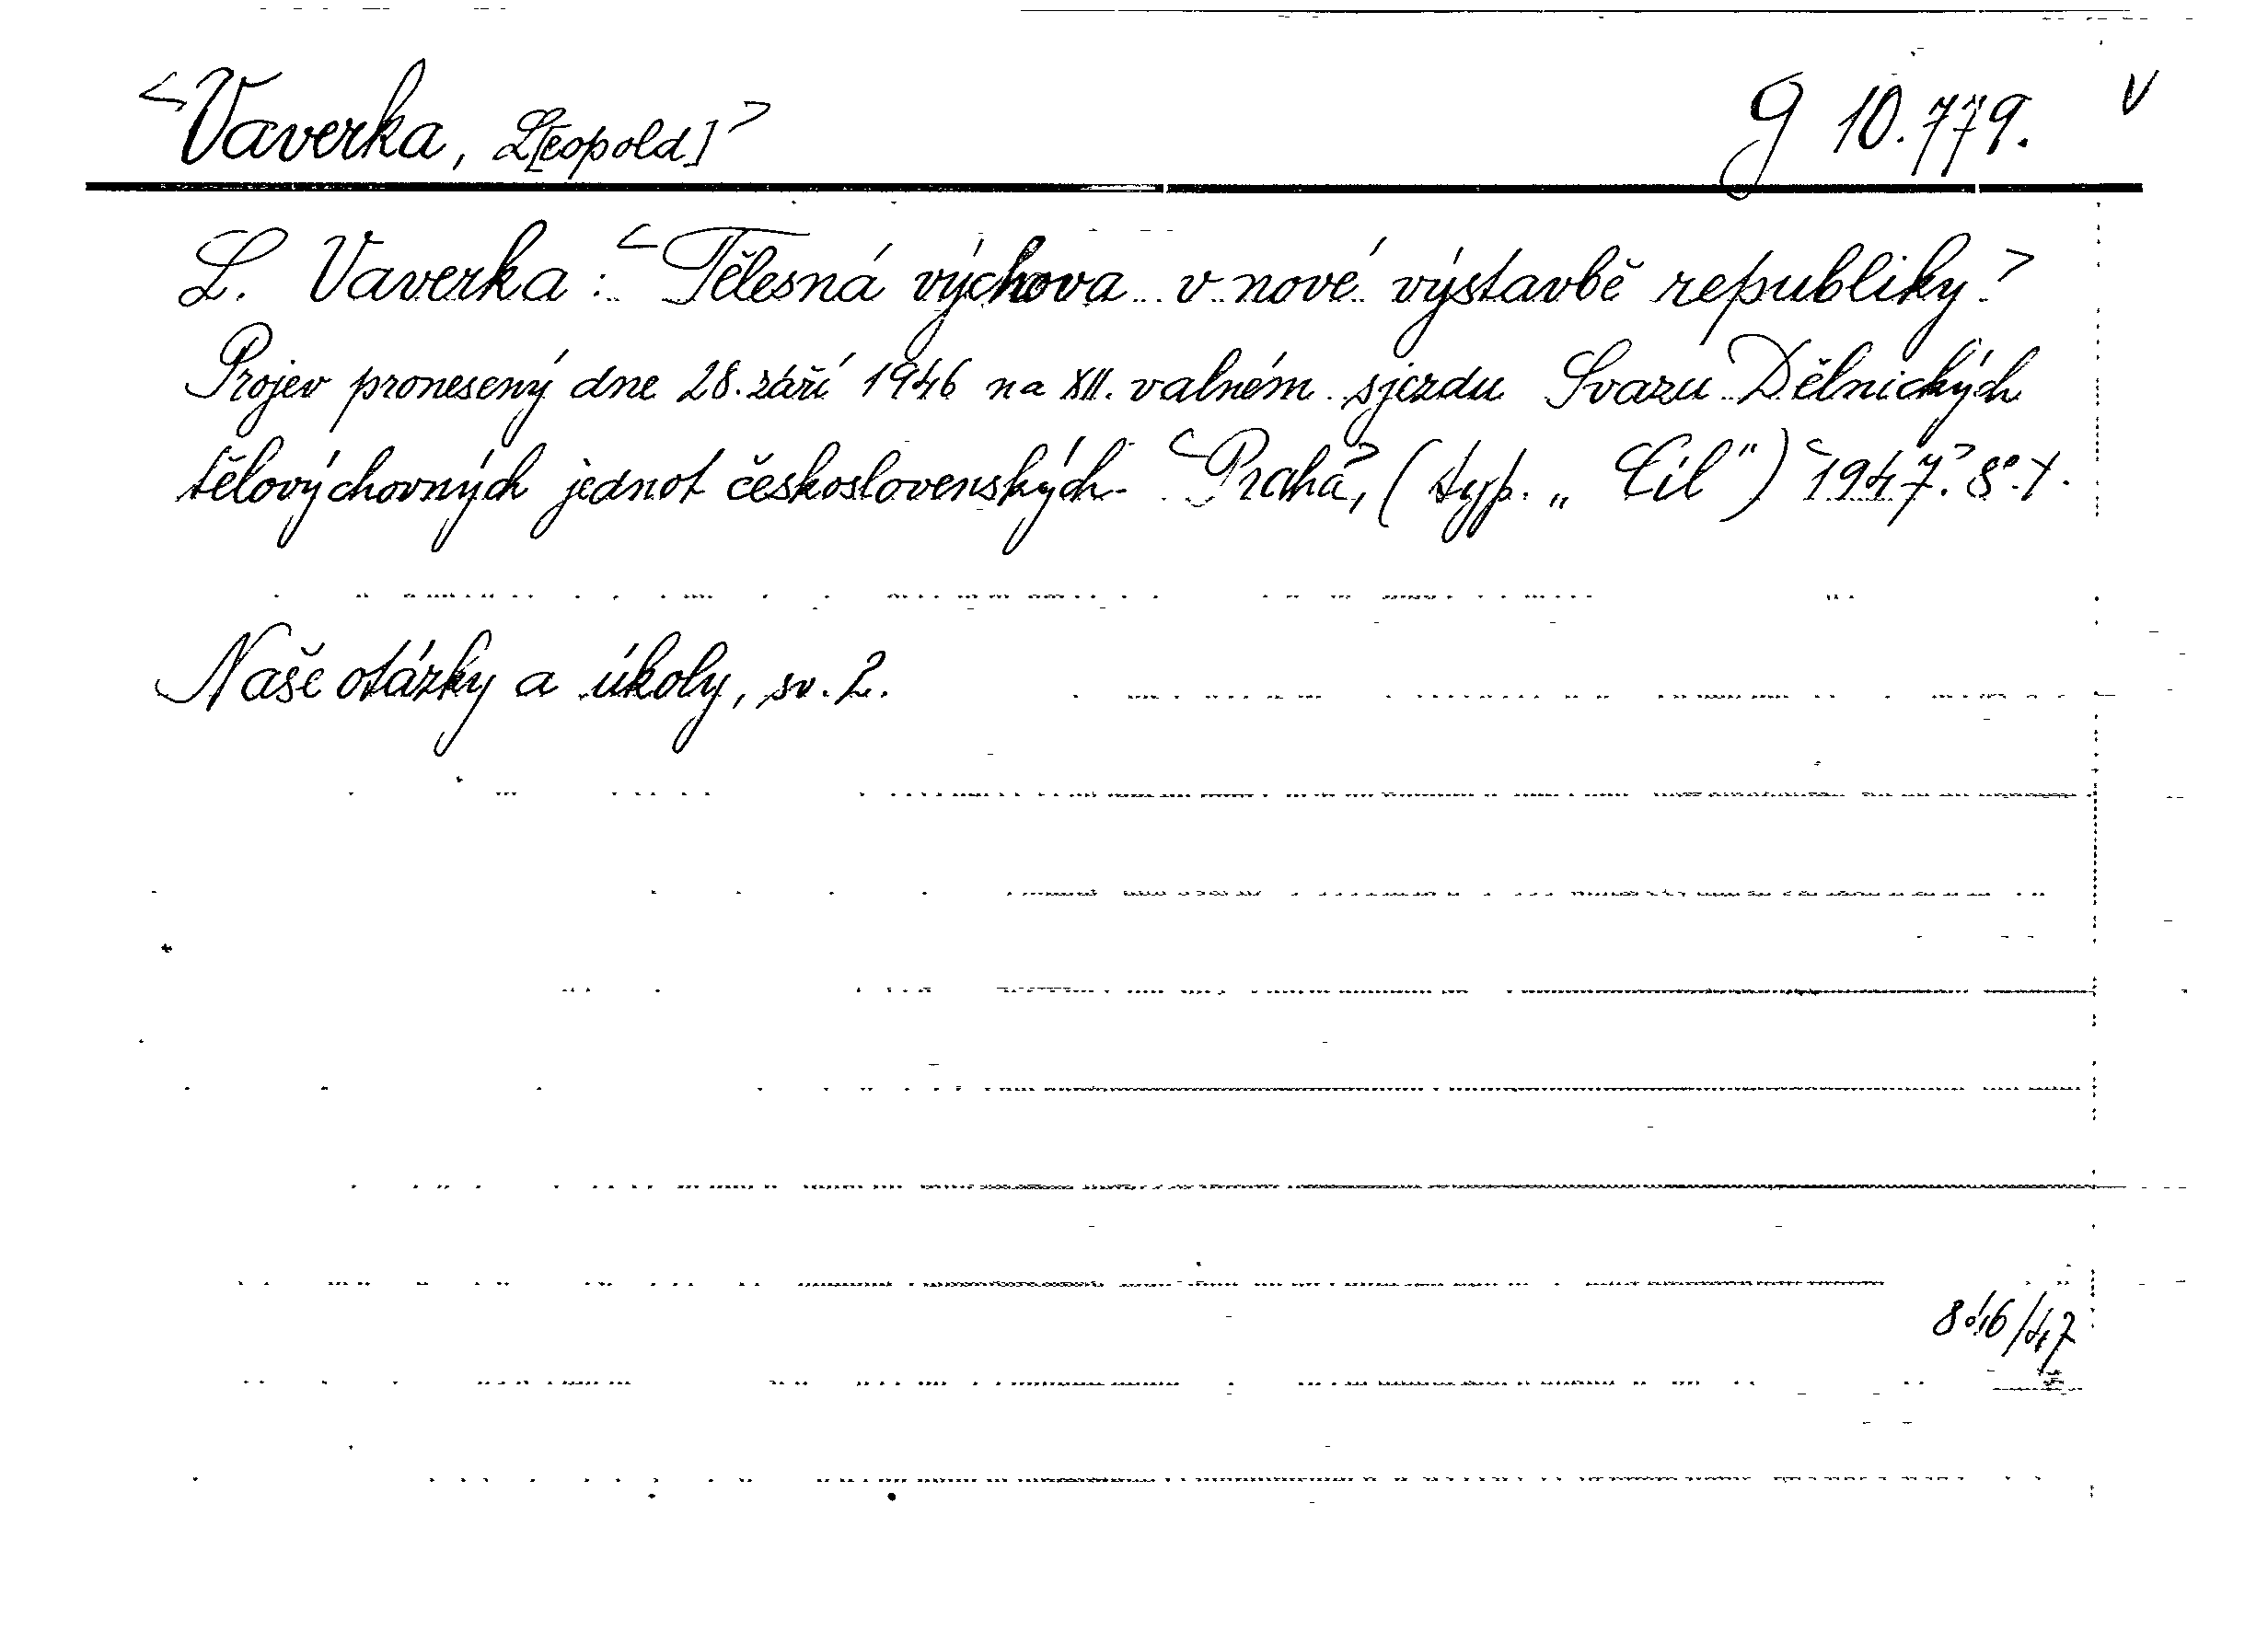 <Vaverka, L[eopold]> g 10.779. v
L. Vaverka: <Tělesná výchova v nové výstavbě republiky.>
Projev pronesený dne 28. září 1946 na XII. valném sjezdu Svazu Dělnických
tělovýchovných jednot československých. <Praha>, (typ. „Cíl") <1947.> 8°.
Naše otázky a úkoly, sv. 2.
846/47